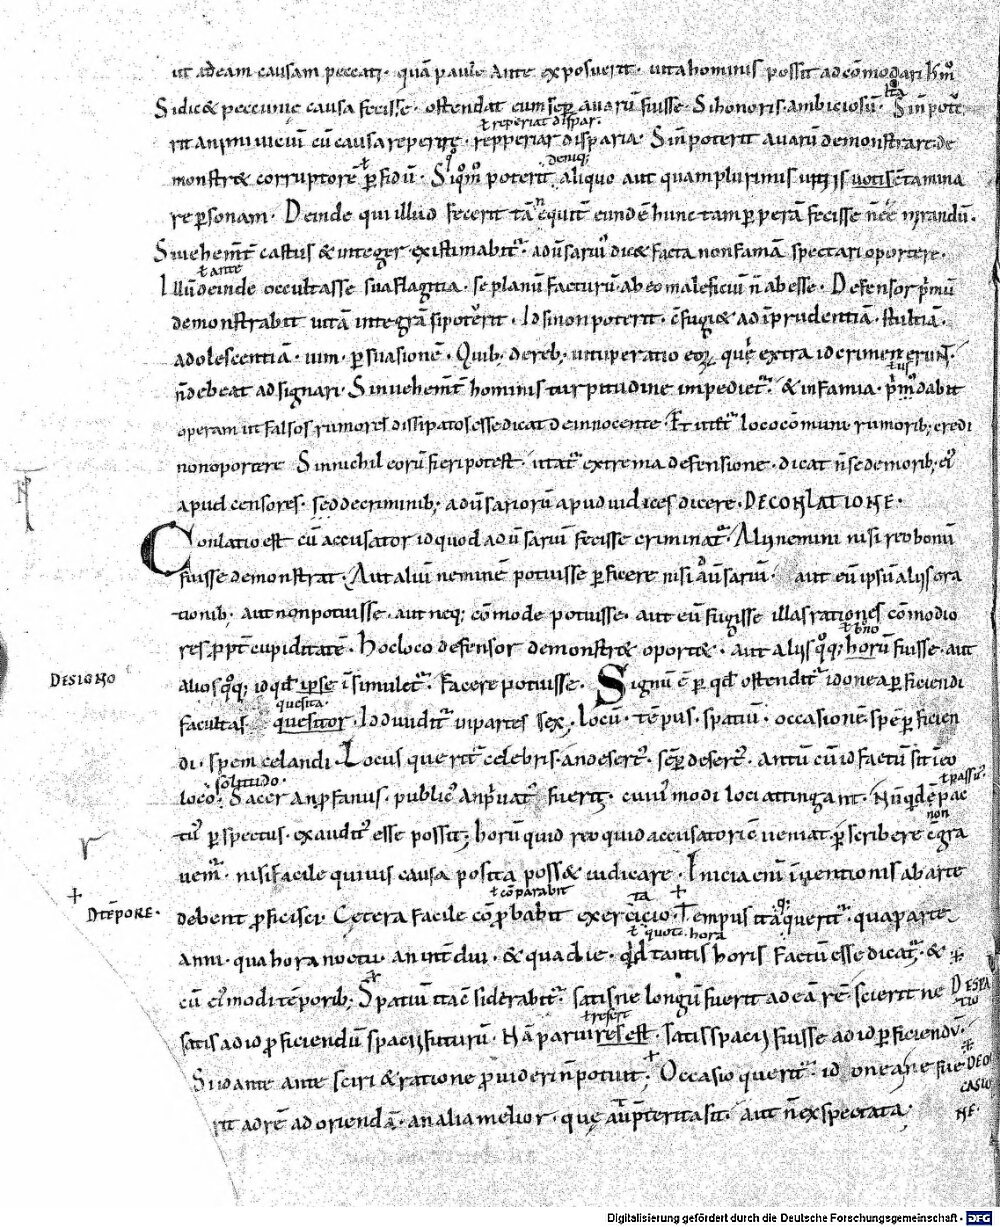 ut ad eam causam peccati · quā paule Ante exposuerit · uita hominis possit ad cōmodari Hm̄
Sidic& pecunie causa fecisse · ostendat eum sēp auarū fuisse · Sihonoris · ambiciosū · Sin̄ pot
ł reperiat dispar ·
rit animi uiciū cū causa reperire · repperiar disparia · Sin̄ poterit auarū demonstrare · de
deniq;
monstr& corruptorē ł perfidū · Siqͦmͦ poterit aliquo aut quam plurimis uitiis uotis c̄tamina
re p̱sonam · Deinde qui illud fecerit tā eundē hunc tam p̱perā fecisse n̄ ēē mirandū ·
Siuehem̄t castus & integer existimabit᷑ · adūsariuͥ dic& facta non famā spectari oportere ·
ł ante
Illū deinde occultasse sua flagitia · se planū facturū · ab eo maleficiū n̄ abesse · Defensor p̄mū
demonstrabit uitā integrā si poterit · Id si non poterit · c̄fugi& ad īprudentiā · stultiā ·
adolescentiā · uim · p̱suasionē · Quib; de reb; uituperatio eoꝝ que extra id crimen erunt ·
n̄ debeat adsignari · Sinuehem̄t hominis turpitudine impediet᷑ · & infamia · p̄m dabit
operam ut falsos rumores dissipatos esse dicat de innocente · Et utet᷑ loco cōmuni rumorib; credi
non oportere Sin nichil eorū fieri potest · utat᷑ extrema defensione · dicat n̄ se de morib; ei᷒
apud censores · sed de criminib; adūsariorū apud iudices dicere · DECONLATIONE ·
Conlatio est cū accusator id quod adūsariū fecisse criminat᷑ · Alii nemini nisi reo bonū
fuisse demonstrat · Aut aliū neminē potuisse p̱ficere nisi adūsariū · aut eū ipsū aliis ra
tionib; aut non potuisse · aut neq; cōmode potuisse · aut eū fugisse illas rationes cōmodio
ł bͦno
res ꝓpt̄ cupiditatē · Hoc loco defensor demonstr& oport& · aut aliis qͦq; horū fuisse · aut
DESIGNO
alios qͦq; id qd̄ ipse īsimulet᷑ · facere potuisse · Signū ē p̱ qd̄ ostendit᷑ idonea p̱ficiendi
quesita
facultas quesitor · Id diuidit᷑ in partes sex · Locū · tēpus · spatiū · occasionē · spē p̱ficien
di · spem celandi · Locus querit᷑ celebris · an desert᷒ · sēp desert᷒ · an tū cū id factū sit in eo
solitudo ·
loco · Sacer an ꝓfanus · publicꝰ an p̄uatꝰ fuerit · cuiuſmodi loci attingant · Nū qd̄ ē pac
ł passuꝰ
non
tꝰ p̱spectus · exauditꝰ esse possit; horū quid reo quid accusatori c̄ueniat p̱scribere c̄gra
uem᷑ · nisi facile quiuis causa posita poss& iudicare · Inicia enī īuentionis ab arte
ł cōparabit
D TĒPORE ·
debent ꝓficisci · Cetera facile cōprobabit exercicio · Tempus ita querit᷑ · qua parte
ł quota hora
anni · qua hora noctu · an int̄diu · & qua die · qd̄ tantis horis factū esse dicat᷑ · &
cū ei᷒modi tēporib; Spatiū ita c̄siderabit᷑ · satisne longū fuerit ad eā rē · scierit ne
DESPA
TIO
ł refert
satis ad id ꝓficiendū spacii futurū · Nā parui res est · satis spacii fuisse ad id p̱ficiendū ·
Si id ante ante sciri & ratione ꝓuideri n̄ potuit · Occasio querit᷑ · id oneane fue
DEOC
CASIO
NE ·
rit ad rē adoriendā · an alia melior · que aut p̄terita sit · aut n̄ exspectata ·
Digitalisierung gefördert durch die Deutsche Forschungsgemeinschaft · DFG